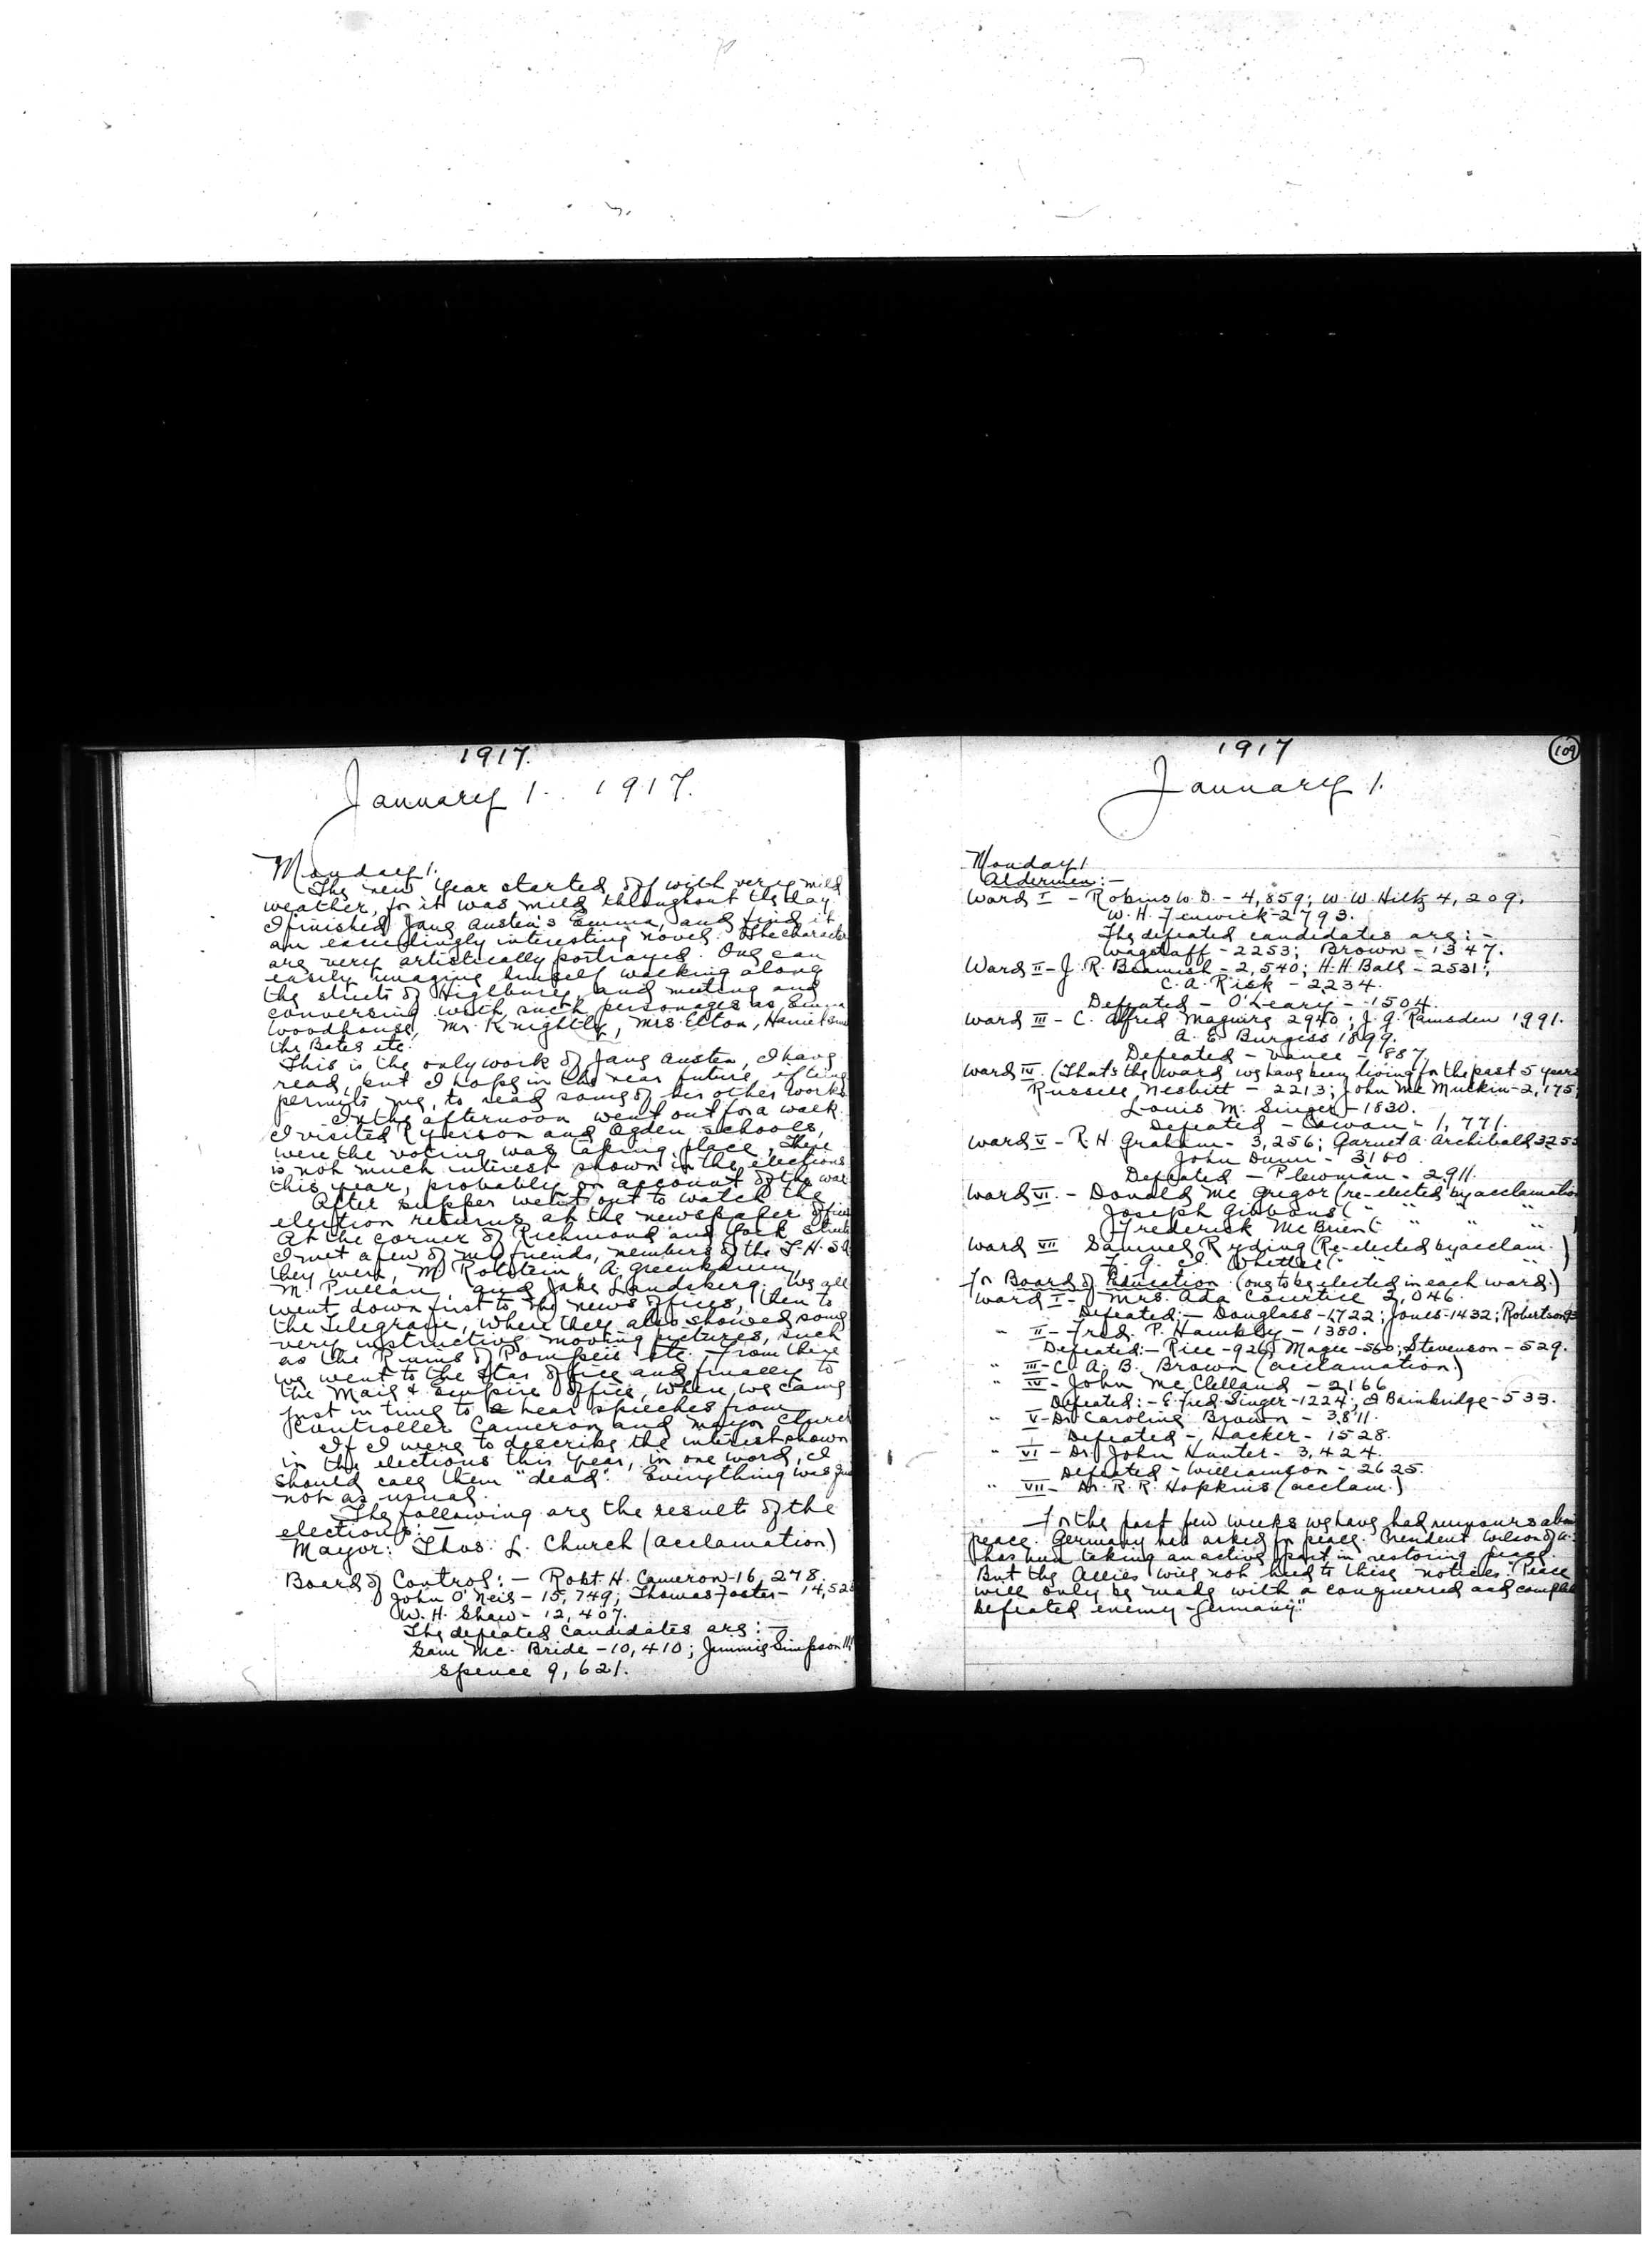 1917.
January 1. 1917.
Monday 1.
The new year started off with very mild
weather, for it was mild throughout the day.
I finished Jane Austen's Emma, and find it
an exceedingly interesting novel. The character
are very artistically portrayed. One can
easily imagine himself walking along
the streets of Highbury and meeting and
conversing with such personages as
Woodhouse, Mr. Knightly, Mrs. Elton,
the Bates etc.
This is the only work of Jane Austen, I have
read, but I hope in the near future, if time
permits me, to read some of her other works
In the afternoon went out for a walk.
I visited Ryerson and Ogden schools,
were the voting was taking place. There
is not much interest shown in the elections
this year, probably on account of the war
After supper went out to watch the
election returns at the newspaper offices
At the corner of Richmond and York Streets
I met a few of my friends, members of the
they were, M. Rotstein, A. Greenbaum,
M. Pullan, and Jake Landsberg. We all
went down first to the News offices, then to
the Telegram, where they also showed some
very instructive moving pictures, such
as the Ruins of Pompeii etc. From there
we went to the Star office and finally to
the Mail & Empire office, where we came
just in time to hear speeches from
Controller Cameron and Mayor Church
If I were to describe the interest shown
in the elections this year, in one word, I
should call them "dead". Everything was
not as usual.
The following are the result of the
elections: —
Mayor: Thos. L. Church (acclamation)
Board of Control: — Robt. H. Cameron - 16,278.
John O'Neil - 15,749; Thomas Foster - 14,52
W. H. Shaw - 12,407.
The defeated candidates are: —
Sam Mc. Bride - 10,410; Jimmie Simpson
Spence 9,621.
1917
109
January 1.
Monday 1
Aldermen: —
Ward I - Robins W. D. - 4,859; W. W. Hiltz 4,209.
W. H. Fenwick - 2793.
The defeated candidates are: —
Wagstaff - 2253; Brown - 1347.
Ward II - J. R. Beamish - 2,540; H. H. Ball - 2531;
C. A. Risk - 2234.
Defeated - O'Leary - 1504.
Ward III - C. Alfred Maguire 2940; J. G. Ramsden 1991.
A. E. Burgess 1899.
Defeated - Vance - 887
Ward IV. (That's the ward we have been living for the past 5 years
Russell Nesbitt - 2213; John Mc Mulkin - 2,175;
Louis M. Singer - 1830.
Defeated - Cowan - 1,771.
Ward V - R. H. Graham - 3,256; Garnet A. Archibald 325
John Dunn - 3160
Defeated - Plewman - 2911.
Ward VI. - Donald Mc Gregor (re-elected by acclamation
Joseph Gibbons ( " " " "
Frederick Mc Brien ( " " " " )
Ward VII Samuel Ryding (Re-elected by acclam. )
Whetter ( " " " "
For Board of Education (one to be elected in each ward.)
Ward I - Mrs. Ada Courtice 2,046.
Defeated - Douglass - 1722; Jones - 1432; Robertson
" II - Fred. P. Hambly - 1380.
Defeated: - Rice - 926; Magee - 560; Stevenson - 529.
" III - C. A. B. Brown (acclamation)
" IV - John Mc Clelland - 2166
Defeated: - E. Fred. Singer - 1224; Bainbridge - 533.
" V - Dr. Caroline Brown - 3,811.
Defeated - Hacker - 1528.
" VI - Dr. John Hunter - 3,424.
Defeated - Williamson - 2625.
" VII - Dr. R. R. Hopkins (acclam.)
For the past few weeks we have had rumours about
peace. Germany has asked for peace. President Wilson of
has been taking an active part in restoring peace.
But the Allies will not heed to these notices. "Peace
will only be made with a conquered and
defeated enemy - Germany."